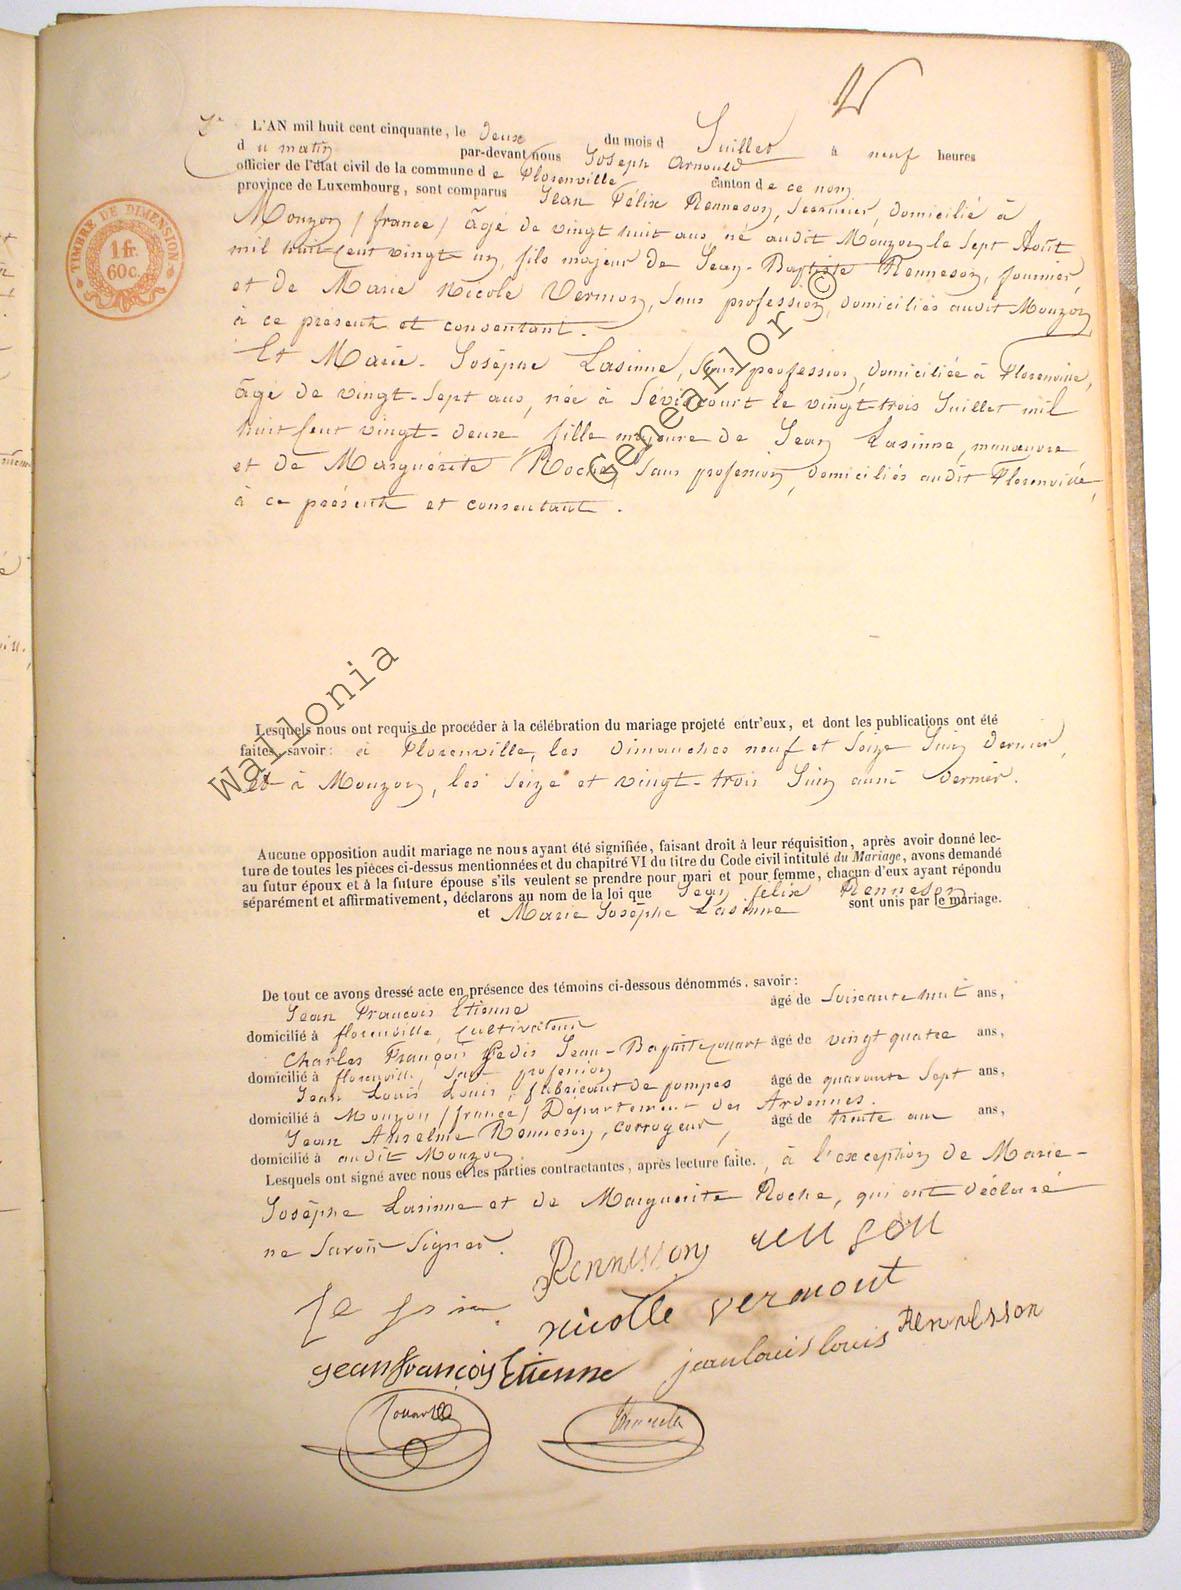 L'AN mil huit cent cinquante, le deux du mois d Juillet à neuf heures
d u matin par-devant nous Joseph Arnould
officier de l'état civil de la commune d e Florenville canton d e ce nom
province de Luxembourg, sont comparus Jean Félix Renneson, Serrurier, domicilié à
Mouzon / france / âgé de vingt huit ans né audit Mouzon le Sept Août
mil huit Cent vingt un, fils majeur de Jean-Baptiste Renneson, journier,
et de Marie Nicole Vermon, Sans profession, domiciliés audit Mouzon
à ce présent et consentant.
Et Marie-Josèphe Lasinne, Sans profession, domiciliée à Florenville,
âgé de vingt-Sept ans, née à Séviscourt le vingt-trois Juillet mil
huit Cent vingt-deux fille majeure de Jean Lasinne, manœuvre
et de Marguérite Roche, Sans profession, domiciliés audit Florenville,
à ce présent et consentant.
Lesquels nous ont requis de procéder à la célébration du mariage projeté entr'eux, et dont les publications ont été
faites, savoir : à Florenville, les dimanches neuf et Seize Juin dernier,
et à Mouzon, les Seize et vingt-trois Juin aussi dernier.
Aucune opposition audit mariage ne nous ayant été signifiée, faisant droit à leur réquisition, après avoir donné lec-
ture de toutes les pièces ci-dessus mentionnées et du chapitré VI du titre du Code civil intitulé du Mariage, avons demandé
au futur époux et à la future épouse s'ils veulent se prendre pour mari et pour femme, chacun d'eux ayant répondu
séparément et affirmativement, déclarons au nom de la loi que Jean félix Renneson
et Marie Josèphe Lasinne sont unis par le mariage.
De tout ce avons dressé acte en présence des témoins ci-dessous dénommés, savoir :
Jean François Etienne âgé de Soixante huit ans,
domicilié à florenville, Cultivateur
Charles François Jean-Baptiste âgé de vingt quatre ans,
domicilié à florenville, Sans profession
Jean Louis Louis, fabricant de pompes âgé de quarante Sept ans,
domicilié à Mouzon / france / Département des Ardennes.
Jean Anselme Renneson, corroyeur, âgé de trente ans ans,
domicilié à audit Mouzon.
Lesquels ont signé avec nous et les parties contractantes, après lecture faite., à l'exception de Marie-
Josèphe Lasinne et de Marguerite Roche, qui ont déclaré
ne Savoir Signer.
Rennesson
nicolle vermont
jean françois Etienne jean louis louis Rennesson
TIMBRE DE DIMENSION
1 fr.
60 c.
Wallonia Geneaflor ©